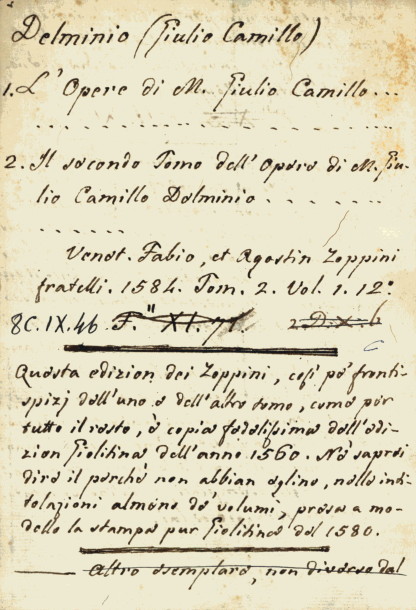 Delminio (Giulio Camillo)
1. L' Opere di M. Giulio Camillo ...
. . . . . . . . . . . . . . . . . . .
2. Il secondo Tomo dell' Opere di M. Giu-
lio Camillo Delminio . . . . . . . .
. . . . . .
Venet. Fabio, et Agostin Zoppini
fratelli. 1584. Tom. 2. Vol. 1. 12º
8C.IX.46 F." XI. 71. 2 D. X. 6
Questa edizion dei Zoppini, cosſ pe' fronti-
spizj dell' uno e dell' altro tomo, come per
tutto il resto, è copia fedelissima dell' edi-
zion Giolitina dell' anno 1560. Nè saprei
dire il perchè non abbian eglino, nelle inti-
tolazioni almeno de' volumi, presa a mo-
dello la stampa pur Giolitina del 1580.
Altro esemplare, non diverso dal